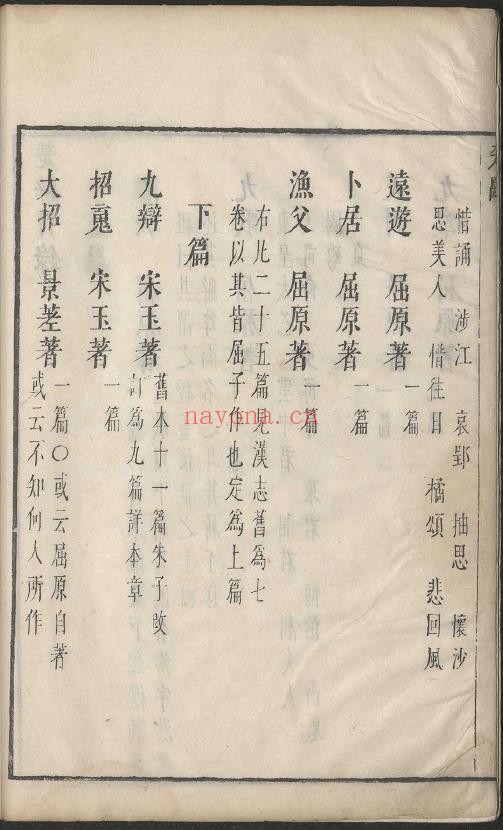 惜誦 涉江 哀郢 抽思 懷沙
思美人 惜往日 橘頌 悲回風
遠遊 屈原著 一篇
卜居 屈原著 一篇
漁父 屈原著 一篇
右此二十五篇見漢志舊爲七
卷以其皆屈子作也定爲上篇
下篇
九辯 宋玉著 舊本十一篇朱子改
訂爲九篇詳本章
招䰟 宋玉著 一篇
大招 景差著 一篇〇或云屈原自著
或云不知何人所作
nayona.cn